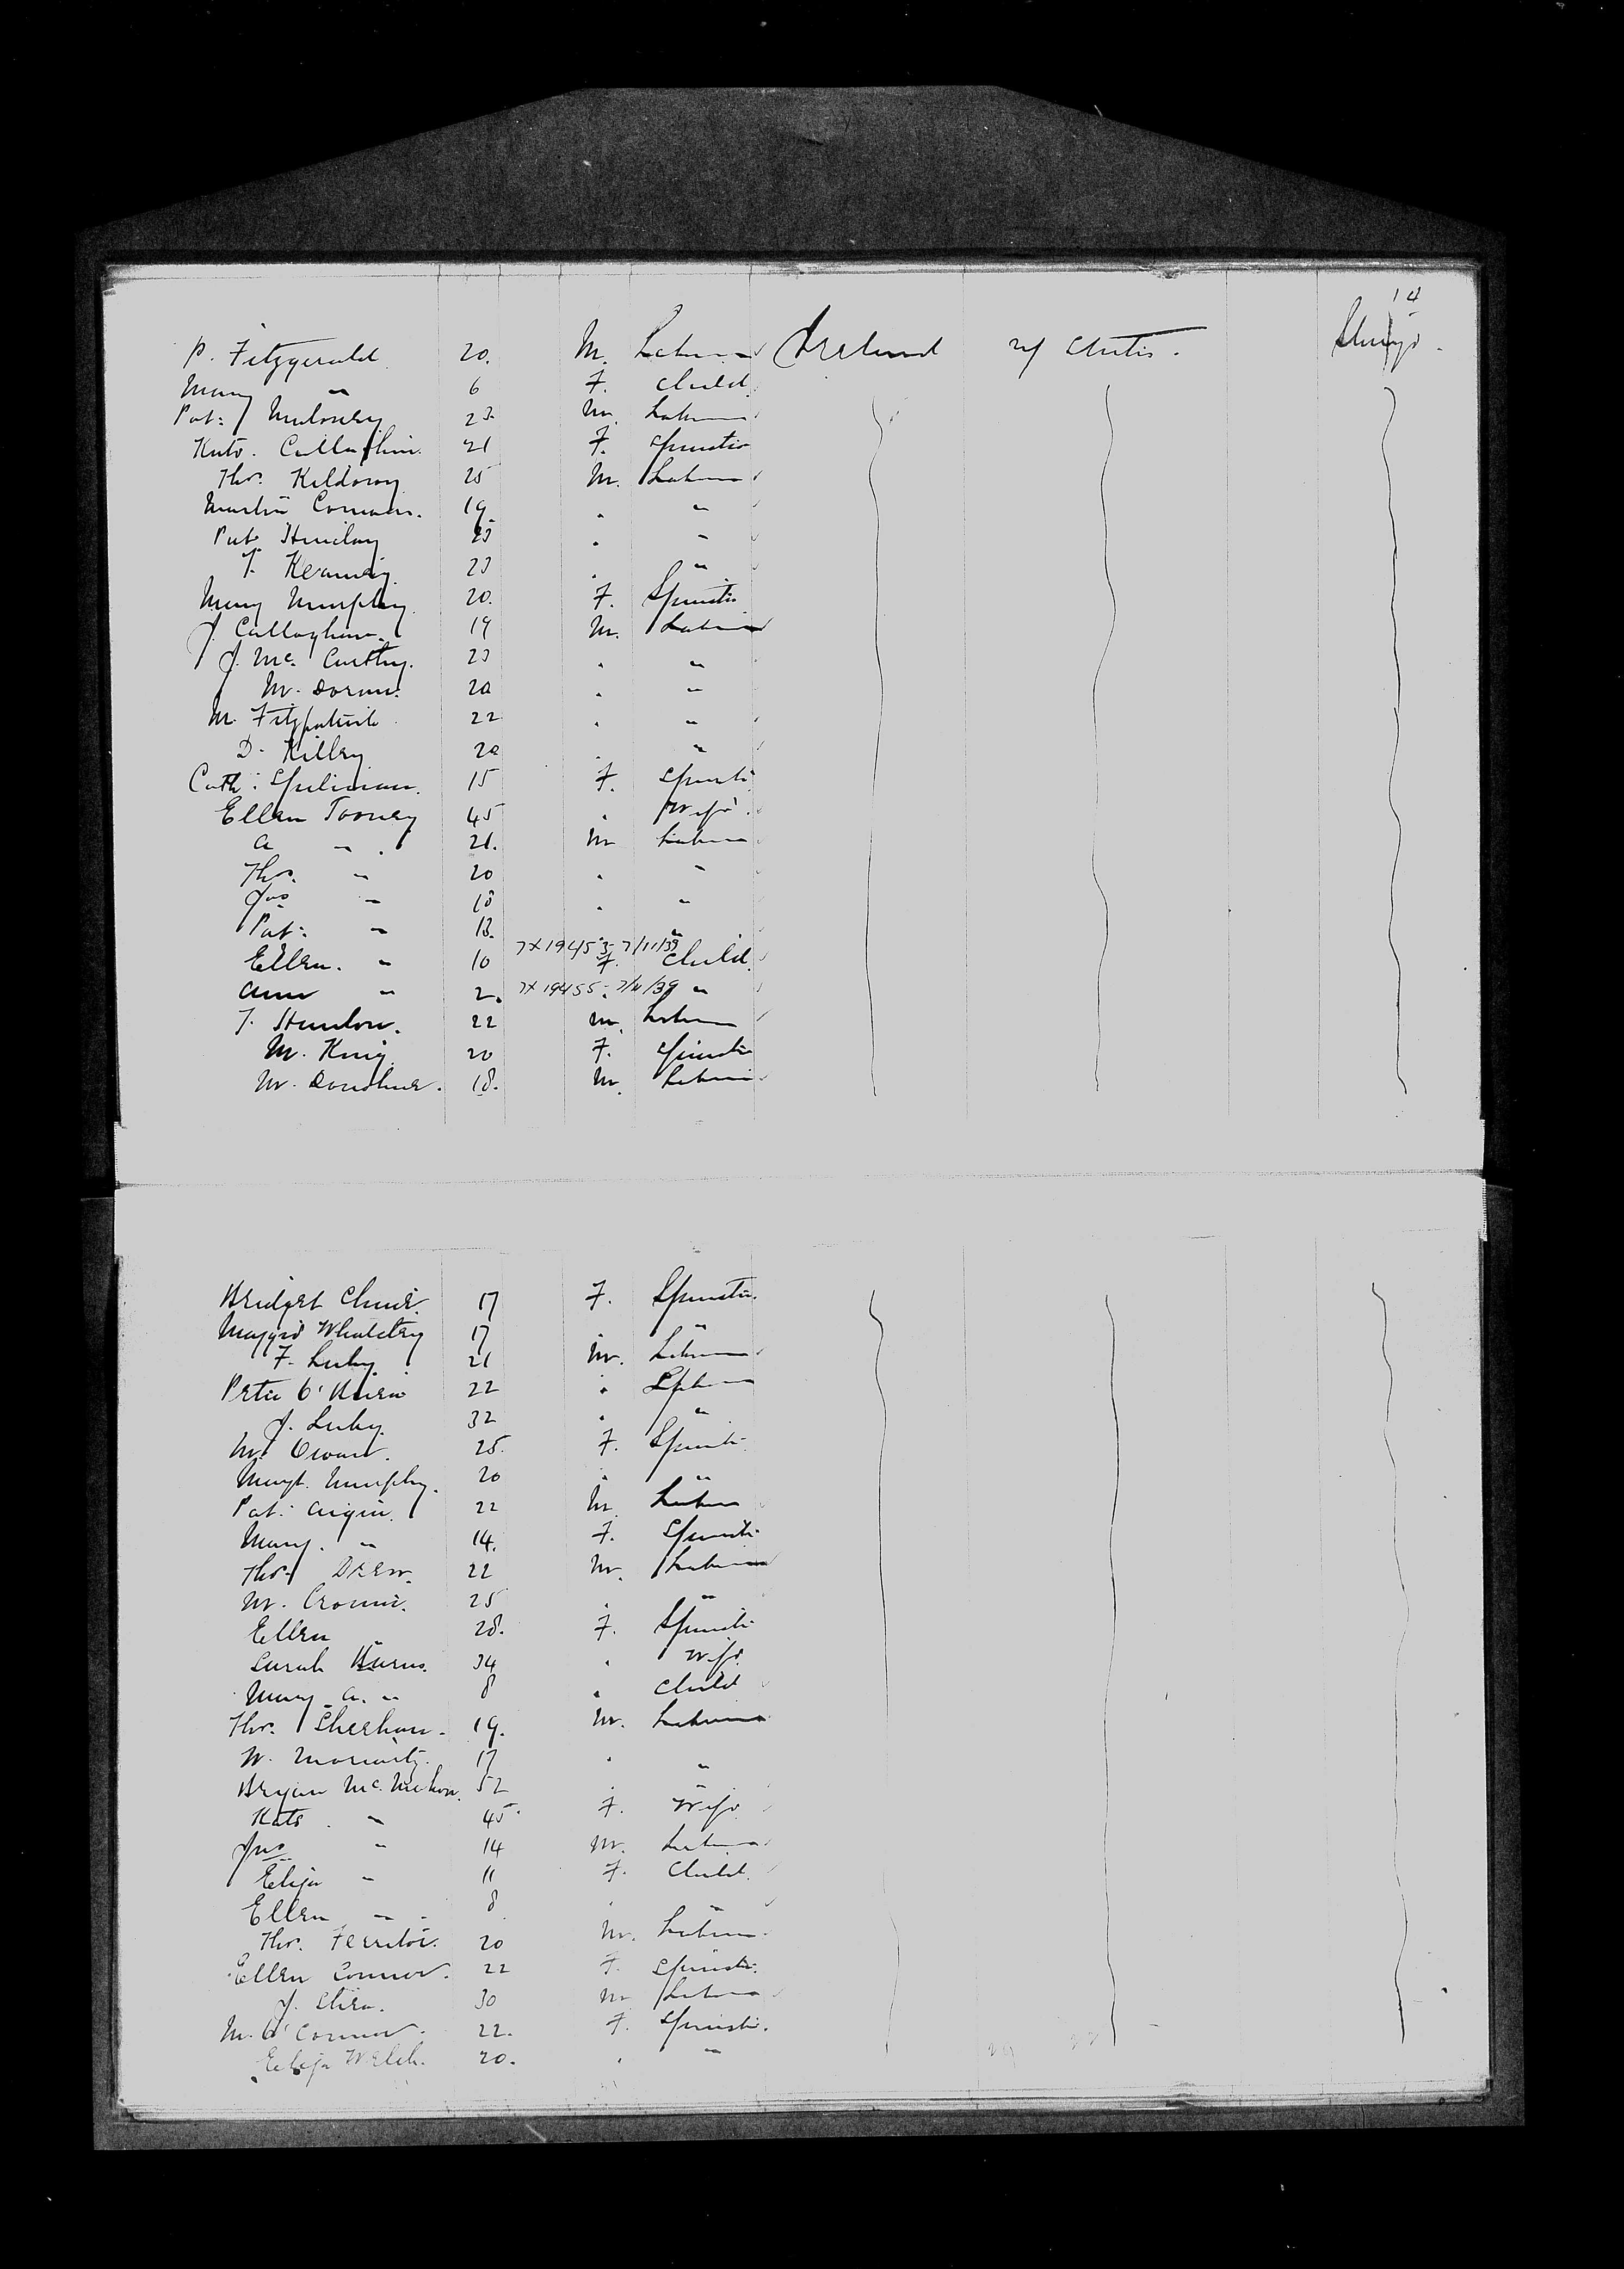 14
P. Fitzgerald 20. M. Labour Ireland U/ States. Steerage
Mary " 6 F. Child
Pat: Moloney 23 M. Labour
Kate. Callaghan. 21 F. Spinster
Thos. Kildoroy 25 M. Labour
Martin Connors. 19. " "
Pat. Hurley 23 " "
T. Kearney. 23 " "
Mary Murphy 20. F. Spinster
J. Callaghan. 19 M. Labour
J. Mc. Carthy. 23 " "
M. Doran. 20 " "
M. Fitzpatrick 22 " "
D. Killey 20 " "
Cath: Spillman. 15 F. Spinster
Ellen Toomey 45 " Wife
A " 21. M Labour
Thos. " 20 " "
Jas " 18 " "
Pat: " 13. "
Ellen. " 10 7x19453- 7/11/39 F. Child
Ann " 2. 7x19455- 7/11/39 "
T. Hanlon. 22 M. Labour
M. King 20 F. Spinster
M. Donohue. 18. M. Labour
Bridget 17 F. Spinster.
Maggie 17 " "
F. Luby 21 M. Labour
Peter O'Brien 22 " Labour
J. Luby. 32 " "
M. 25. F. Spinster
Margt. Murphy. 20 " "
Pat: 22 M. Labour
Mary. " 14. F. Spinster
Thos. Drew. 22 M. Labour
M. Cronin. 25 " "
Ellen " 28. F. Spinster
Sarah Burns. 34 " Wife
Mary A. " 8 " Child
Thos. Sheehan. 19. M. Labour
W. Moriarty. 17 " "
Bryan Mc. Mahon. 52 " "
Kate " 45. F. Wife
Jno " 14 M. Labour
Eliza " 11 F. Child.
Ellen " 8 "
Thos. Ferriter. 20 M. Labour
Ellen Connor. 22 F. Spinster.
J. Shea. 30 M Labour
M. O'Connor. 22. F. Spinster.
Eliza Welch. 20. " "